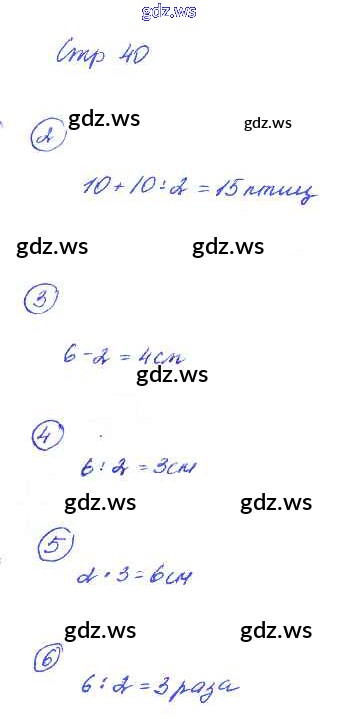 gdz.ws
Стр 40
gdz.ws gdz.ws
2
10 + 10 : 2 = 15 птиц
gdz.ws gdz.ws
3
6 - 2 = 4 см
gdz.ws
4
6 : 2 = 3 см
gdz.ws gdz.ws
5
2 · 3 = 6 см
gdz.ws gdz.ws
6
6 : 2 = 3 раза